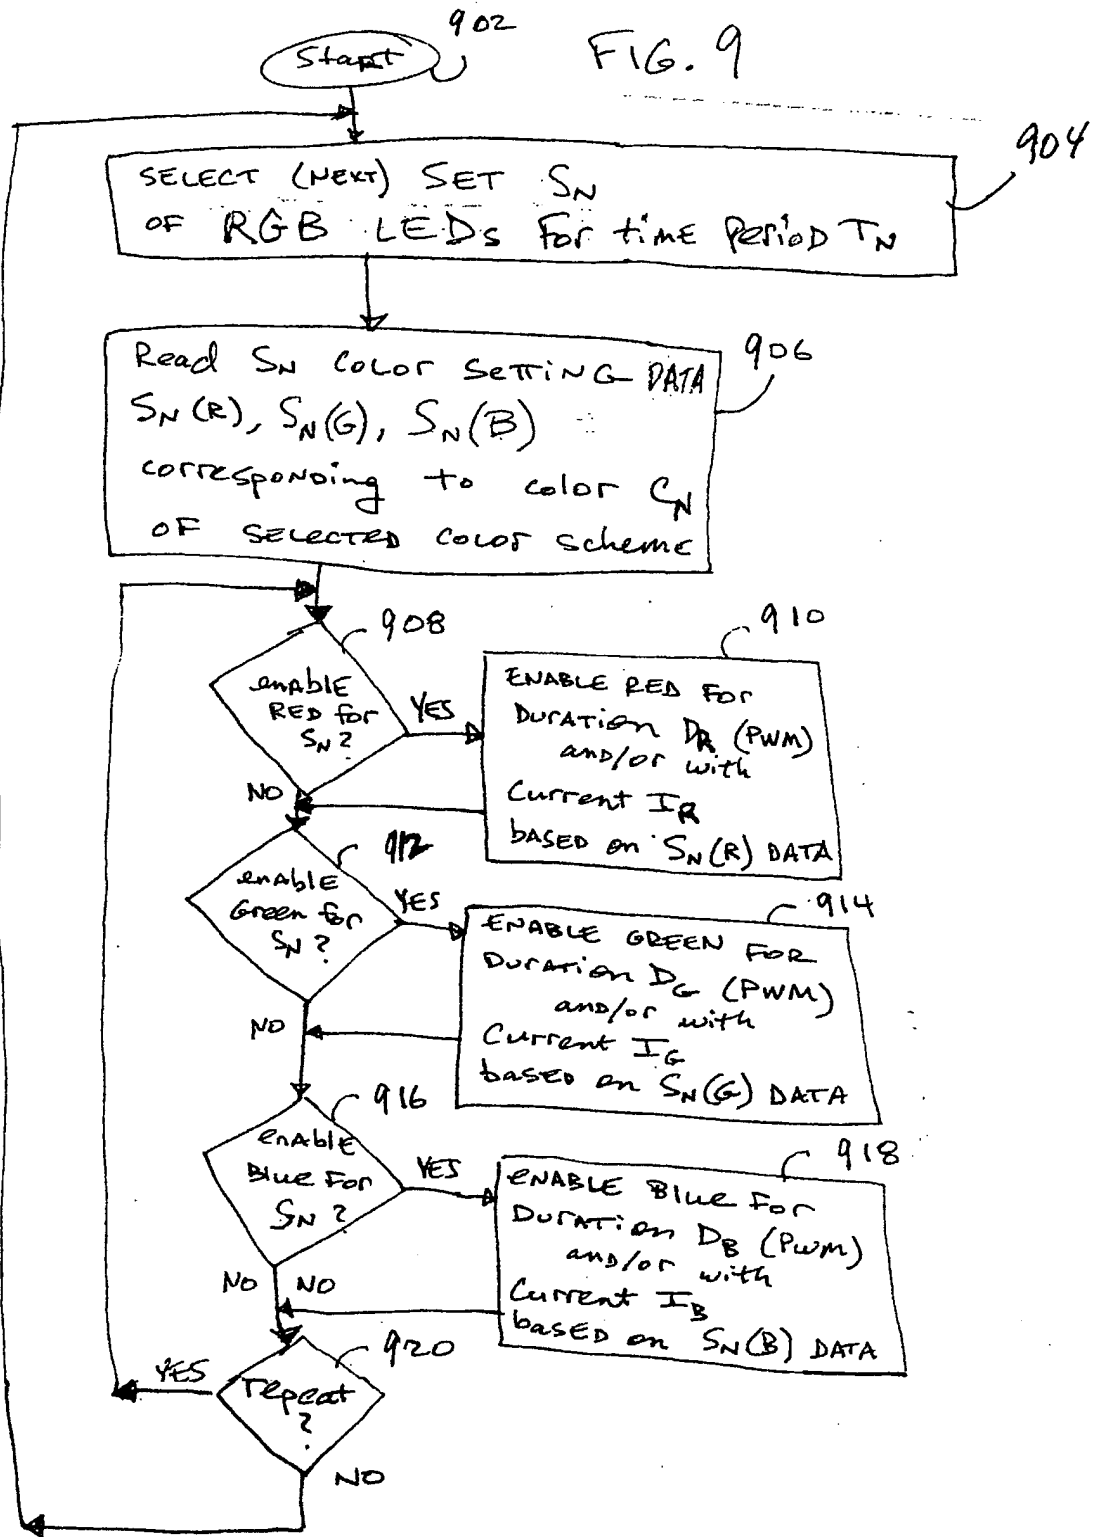 902
Start
FIG. 9
904
SELECT (NEXT) SET SN
OF RGB LEDs For time Period TN
906
Read SN COLOR SETTING DATA
SN(R), SN(G), SN(B)
corresponding to color CN
OF SELECTED COLOR Scheme
908
enable
RED for
SN?
YES
NO
910
ENABLE RED For
Duration DR (PWM)
and/or with
Current IR
based on SN(R) DATA
912
enable
Green for
SN?
YES
NO
914
ENABLE GREEN FOR
Duration DG (PWM)
and/or with
Current IG
based on SN(G) DATA
916
enable
Blue For
SN?
YES
NO NO
918
ENABLE Blue For
Duration DB (PWM)
and/or with
Current IB
based on SN(B) DATA
920
repeat
?
YES
NO